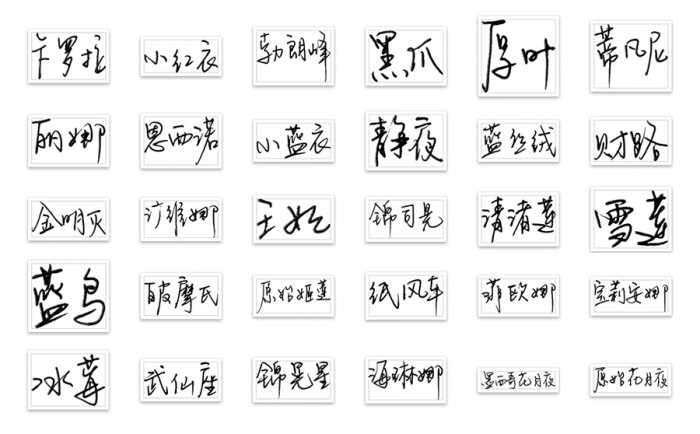 卡罗拉 小红衣 勃朗峰 黑爪 厚叶 蒂凡尼
丽娜 恩西诺 小蓝衣 静夜 蓝丝绒 财路
沙维娜 锦司晃 清渚莲 雪莲
蓝鸟 原始姬莲 纸风车 菲欧娜 宝莉安娜
冰莓 武仙座 锦晃星 海琳娜 墨西哥花月夜 原始花月夜